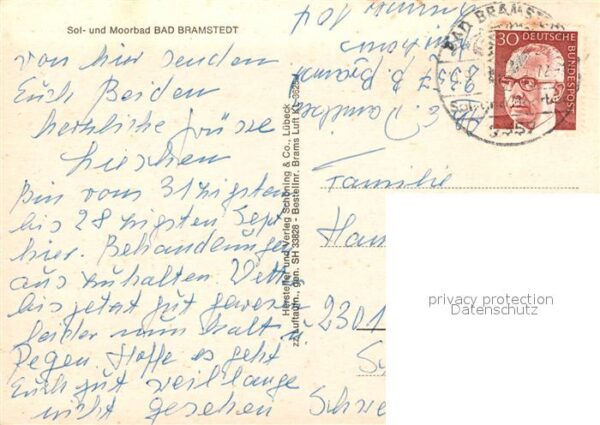 Sol- und Moorbad BAD BRAMSTEDT
von hier senden
Euch Beiden
herzliche Grüsse
Lieschen
Bin vom 31zigsten
bis 28zigsten Sept
hier. Behandlungen
aus zuhalten. Wetter
bis jetzt gut gewesen
leider nun kalt u
Regen. Hoffe es geht
Euch gut weil lange
nicht gesehen
Hersteller und Verlag Schöning & Co., Lübeck
Luftaufn., gen. SH 33828 - Bestellnr. Brams Luft KL
2357 B. Bramst
BAD BRAMSTE
2357
30 DEUTSCHE
BUNDESPOST
Familie
Han
2301
Schwe
privacy protection
Datenschutz